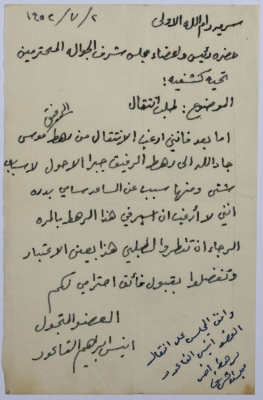 سرية رام الله الاولى ١٩٥٢/٧/٢
حضرة رئيس واعضاء مجلس شرف الجوالة المحترمين
تحية كشفية!
الموضوع: طلب انتقال
اما بعد فانني ارغب الانتقال من رهط الرفيق موسى
جاد الله الى رهط الرفيق جبرا الاحول لاسباب
شتى ومنها سبب عن الساعد سامي بدره
انني لا أرغب ان اسير في هذا الرهط بالمره
الرجاء ان تنظروا لطلبي هذا بعين الاعتبار
وتفضلوا بقبول فائق احترامي لكم
العضو المتجول
انيس ابراهيم القاعود
وافق المجلس على انتقال
العضو أنيس القاعود
لرهط آخر